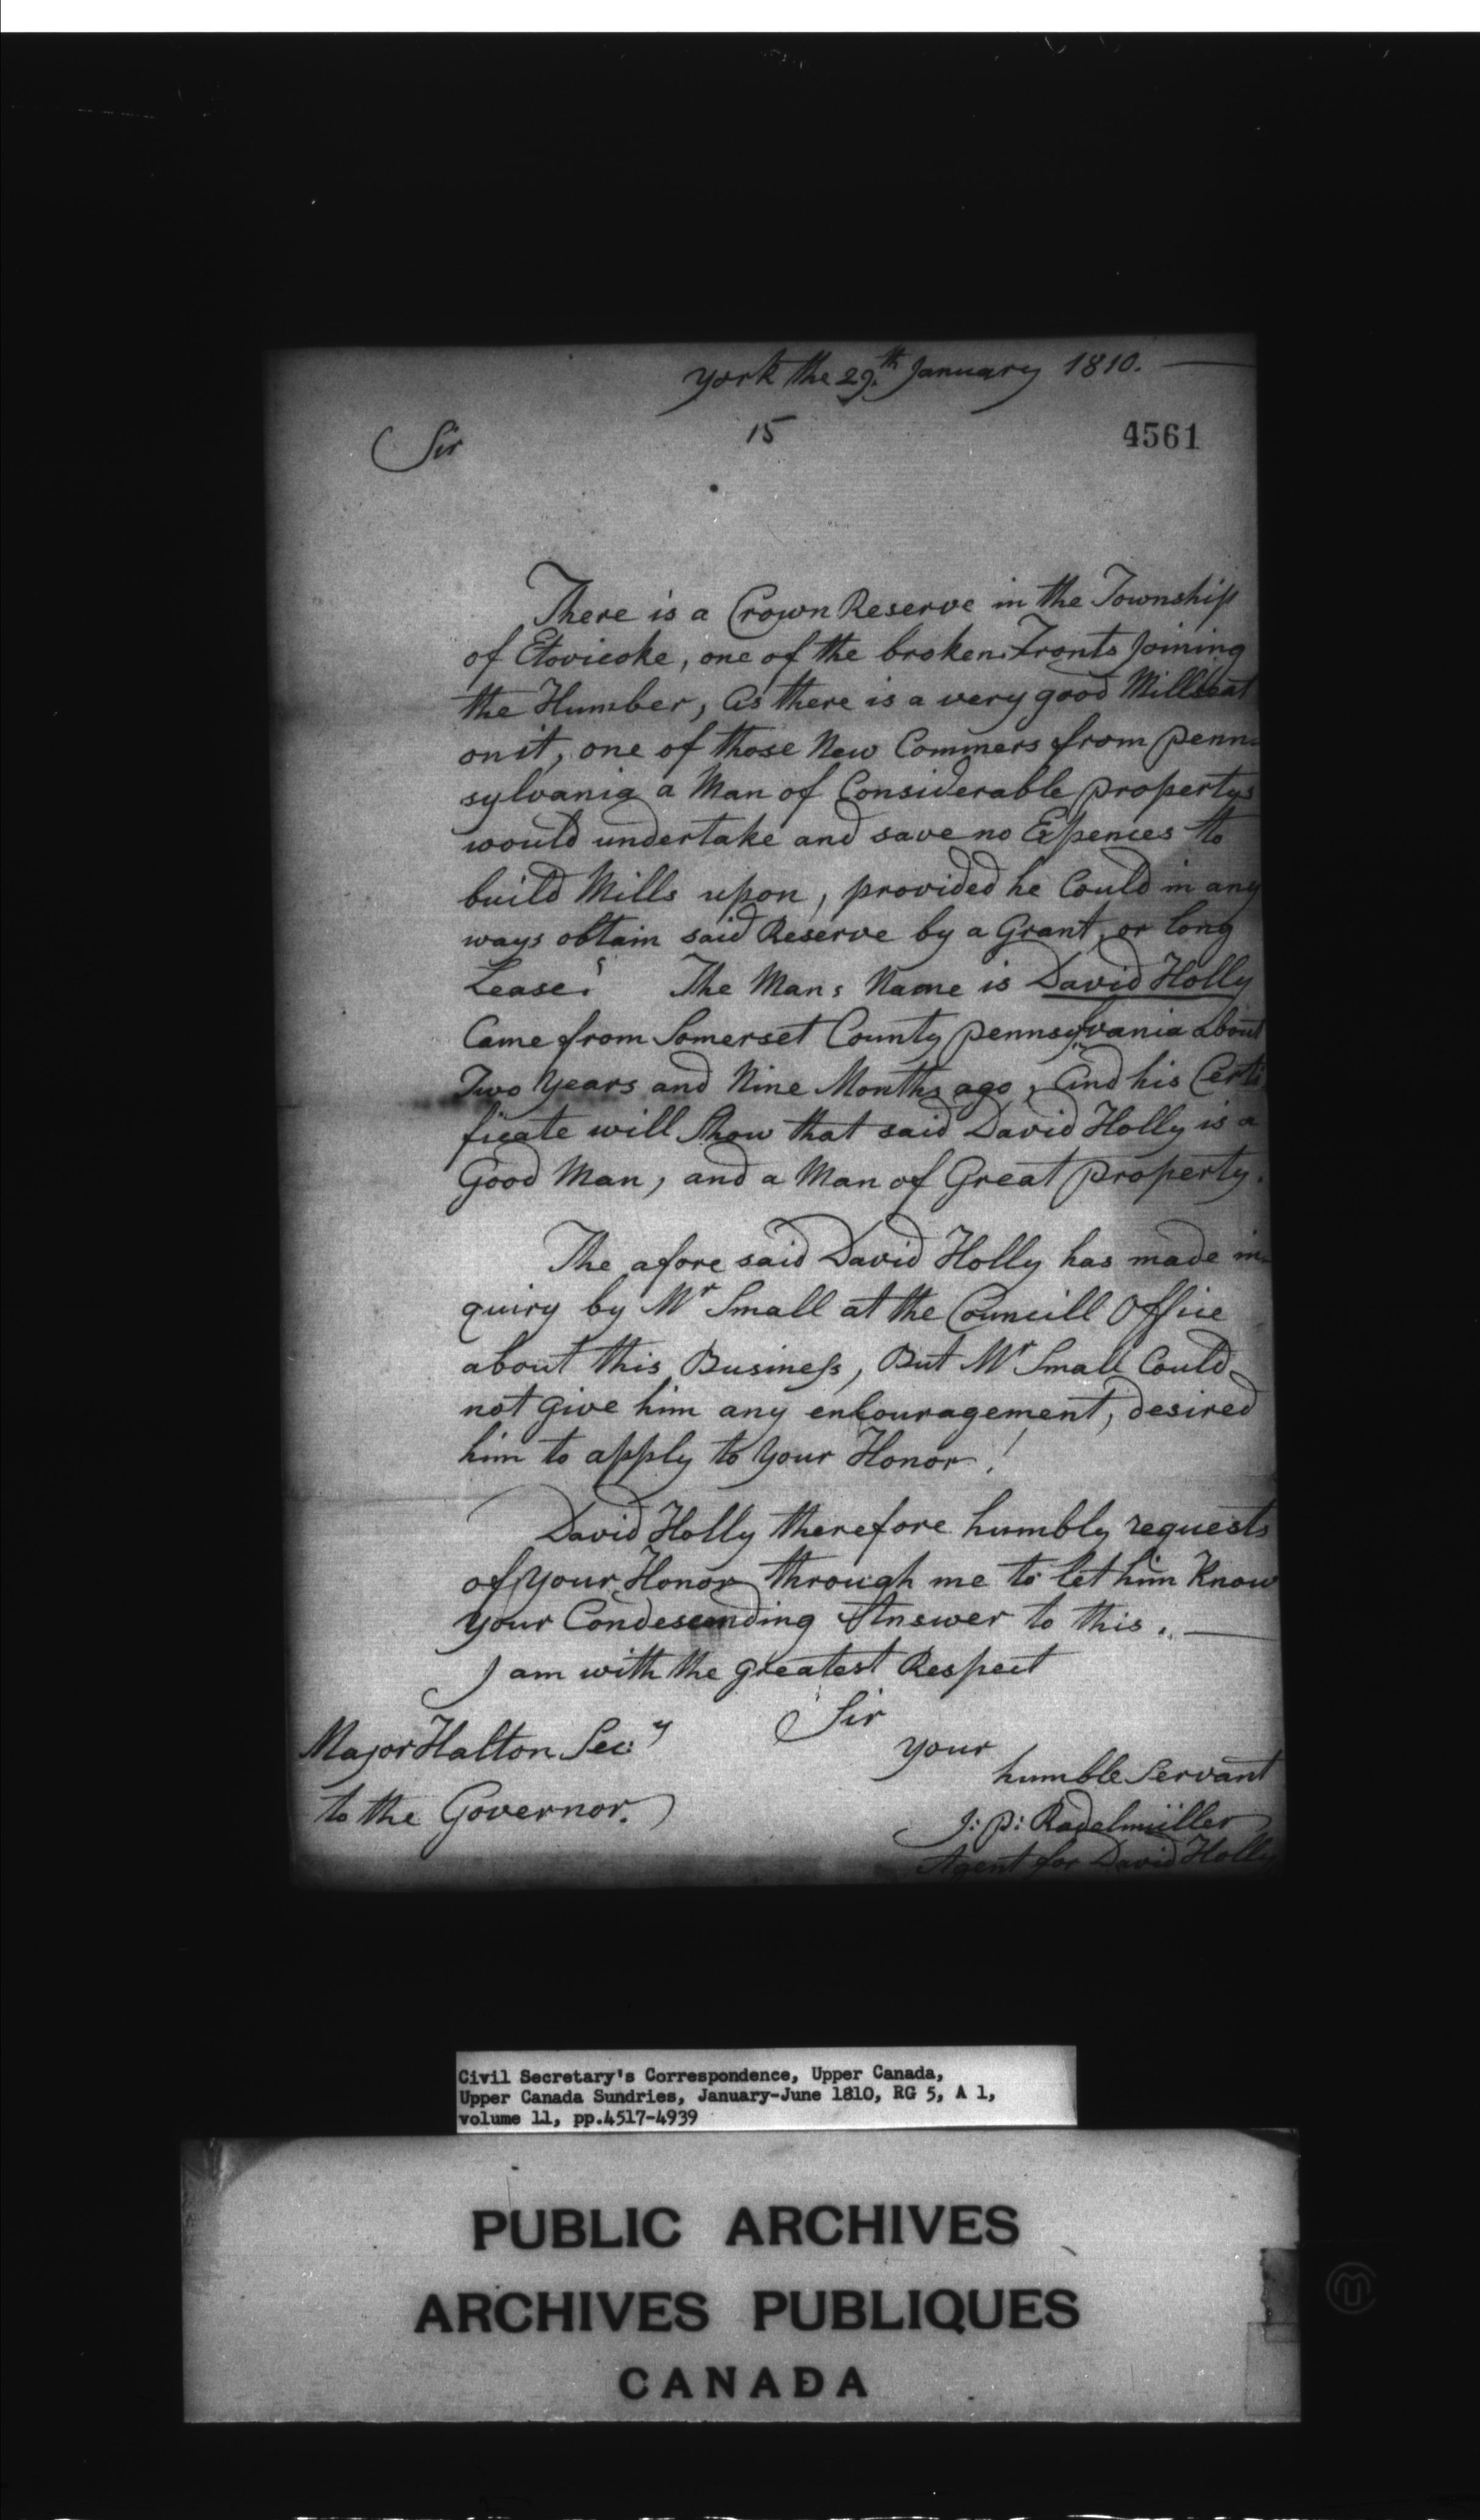 York the 29.th January 1810.
Sir
15
4561
There is a Crown Reserve in the Township
of Etovicoke, one of the broken Fronts joining
the Humber, As there is a very good Millseat
on it, one of those New Commers from Penn=
sylvania a Man of Considerable propertys
would undertake and save no Expences to
build Mills upon, provided he Could in any
ways obtain said Reserve by a Grant, or long
Lease! The Mans Name is David Holly
Came from Somerset County Pennsylvania about
Two Years and Nine Months ago, And his Certi
ficate will Show that said David Holly is a
Good Man, and a Man of Great property.
The afore said David Holly has made in=
quiry by Mr Small at the Councill Office
about this Business, But Mr Small Could
not give him any encouragement, desired
him to apply to Your Honor!
David Holly therefore humbly requests
of Your Honor through me to let him Know
Your Condescending Answer to this.
I am with the greatest Respect
Sir
your
humble Servant
J: P: Radelmüller
Agent for David Holly
Major Halton Secy
to the Governor.
Civil Secretary's Correspondence, Upper Canada,
Upper Canada Sundries, January-June 1810, RG 5, A 1,
volume 11, pp.4517-4939
PUBLIC ARCHIVES
ARCHIVES PUBLIQUES
CANADA